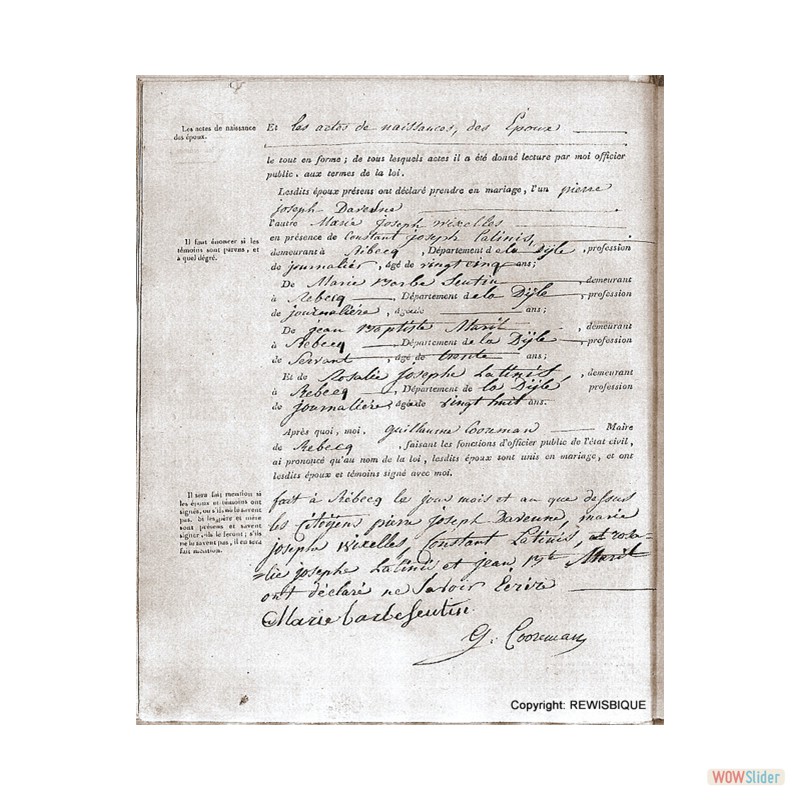 Les actes de naissance
des époux.
Et les actes de naissances, des Epoux
le tout en forme ; de tous lesquels actes il a été donné lecture par moi officier
public, aux termes de la loi.
Lesdits époux présens ont déclaré prendre en mariage, l'un pierre
joseph Davenne
l'autre Marie joseph wixelles
Il faut énoncer si les
témoins sont parens, et
à quel dégré.
en présence de Constant joseph Latinis,
demeurant à Rébecq, Département de la Dijle, profession
de journalier, âgé de vingt cinq ans;
De Marie Barbe Sentin, demeurant
à Rebecq, Département de la Dijle, profession
de journalière, âgé de ans;
De jean Baptiste Marit, demeurant
à Rebecq, Département de la Dijle, profession
de Servant, âgé de trente ans;
Et de Rosalie josephe Latinis, demeurant
à Rebecq, Département de la Dijle, profession
de journalière, âgé de vingt huit ans.
Après quoi, moi, guillaume Cooreman Maire
de Rebecq, faisant les fonctions d'officier public de l'état civil,
ai prononcé qu'au nom de la loi, lesdits époux sont unis en mariage, et ont
lesdits époux et témoins signé avec moi.
Il sera fait mention si
les époux et témoins ont
signés, ou s'ils ne le savent
pas. Si les père et mère
sont présens et savent
signer, ils le feront ; s'ils
ne le savent pas, il en sera
fait mention.
fait à Rébecq le jour mois et an que dessus
les Citoyens pierre joseph Davenne, marie
josephe wixelles, Constant Latinis, et rosa-
lie josephe Latinis et jean, bte Marit
ont déclaré ne Savoir Ecrire
Marie barbe Sentin
G. Cooreman
Copyright: REWISBIQUE
WOWSlider